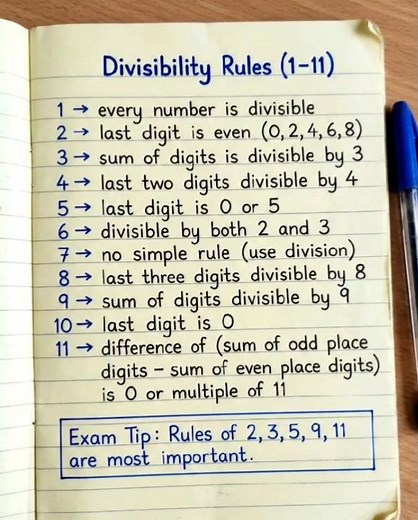 Divisibility Rules (1–11)
1 → every number is divisible
2 → last digit is even (0,2,4,6,8)
3 → sum of digits is divisible by 3
4 → last two digits divisible by 4
5 → last digit is 0 or 5
6 → divisible by both 2 and 3
7 → no simple rule (use division)
8 → last three digits divisible by 8
9 → sum of digits divisible by 9
10 → last digit is 0
11 → difference of (sum of odd place
digits – sum of even place digits)
is 0 or multiple of 11
Exam Tip: Rules of 2, 3, 5, 9, 11
are most important.